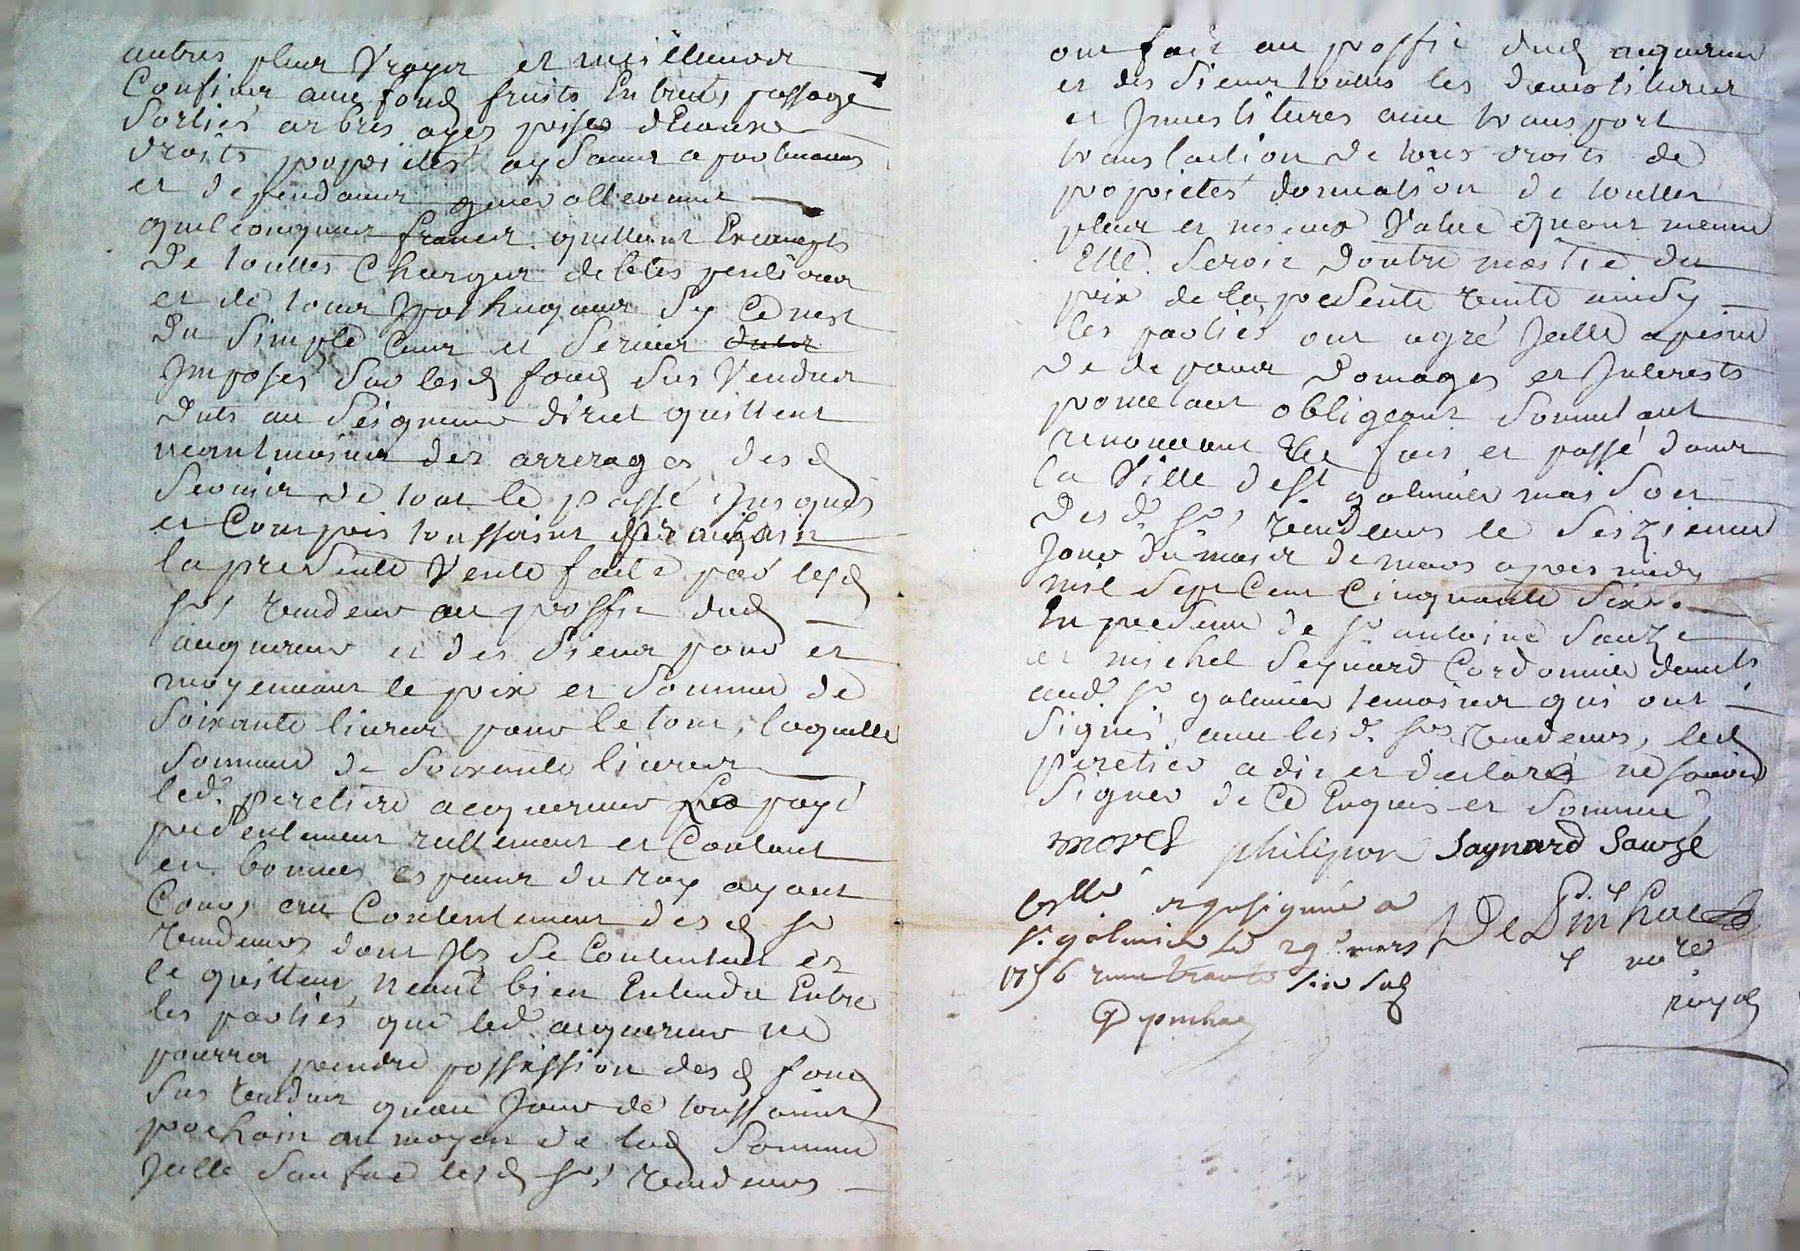 autres plus vrayes et meilleures
Confins avec fonds fruits Entrées passage
sorties arbres ayes prises d'Eaux
droits propriétés aysances apartenances
et dependances generallement
quelconques francs quittes Exempts
De touttes Charges debtes pentions
et de tous Ypotheques sy Ce nest
Du simple Cens et servis
Imposés sur lesd fond sus vendus
Duts au seigneur direct quittent
neantmoins des arrerages desd
servis de tout le passé jusques
et Compris toussaint prochain
la presente Vente faite par lesd
srs vendeurs au proffit dud
acquereur et des siens pour et
moyennant le prix et somme de
soixante livres pour le tout, laquelle
somme de soixante livres
led. peretier acquereur La payé
presentement reellement et Contant
en bonnes especes du roy ayant
Cours au Contentement desd srs
vendeurs dont Ils se Contentent et
le quittent, Neant bien Entendu Entre
les parties que led. acquereur ne
pourra prendre possession desd fond
sus vendus quau Jour de toussaint
prochain au moyen de lad somme
Jcelle sauf lesd srs vendeurs
ont fait au proffit dud acquereur
et des siens touttes les devestitures
et Jnvestitures avec transport
translaction de tous droits de
propriétés donnation de touttes
plus et mieux Value quant meme
Elle seroit D'outre moitié du
prix de la presente vente ainsy
les parties ont agré Jcelle a peine
De depens Domages et Jnterests
promettant obligeant soumettant
renonceant &c fait et passé dans
la Ville de St galmier maison
Desd. srs vendeurs le seizieme
Jour du mois de mars apres midy
mil sept Cent Cinquante six.
En presence de sr antoine sauze
et michel seynard Cordonnier demts
aud. St galmier temoins qui ont
signés avec lesd. srs vendeurs, led
peretier a dit et declaré ne scavoir
signer de Ce Enquis et sommé
morel philipon Saynard Sauze
Collé et qusigniué a
St galmier le 29e mars
1756 six sols
DePinhac
nore
royal
Depinhac